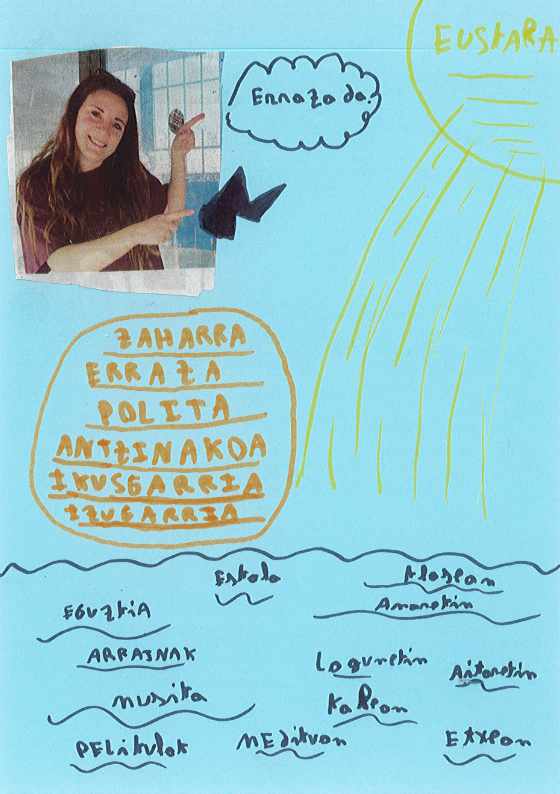 EUSKARA
Erraza da!
ZAHARRA
ERRAZA
POLITA
ANTZINAKOA
IKUSGARRIA
IZUGARRIA
Eskola
Klasean
EGUZKIA
Amarekin
ARRAINAK
Lagunekin
Aitarekin
MUSIKA
Kalean
PELIKULAK
MEdikuan
Etxean